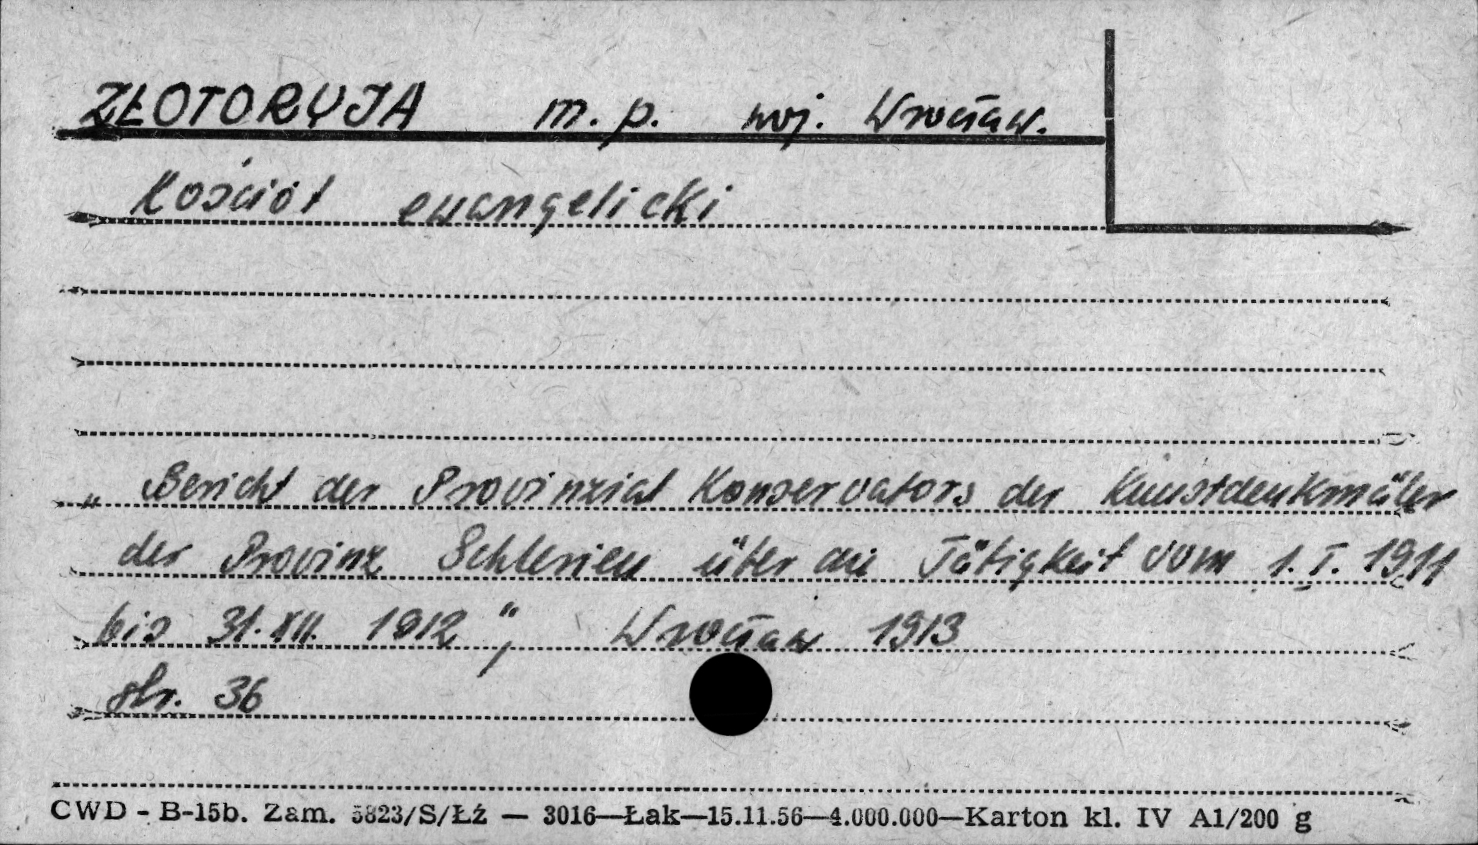 ZŁOTORYJA m. p. woj. Wrocław.
Kościół ewangelicki
„Bericht der Provinzial Konservators der Kunstdenkmäler
der Provinz Schlesien über die Tätigkeit vom 1. I. 1911
bis 31. XII. 1912", Wrocław 1913
str. 36
CWD - B-15b. Zam. 5823/S/Łź — 3016—Łak—15.11.56—4.000.000—Karton kl. IV A1/200 g